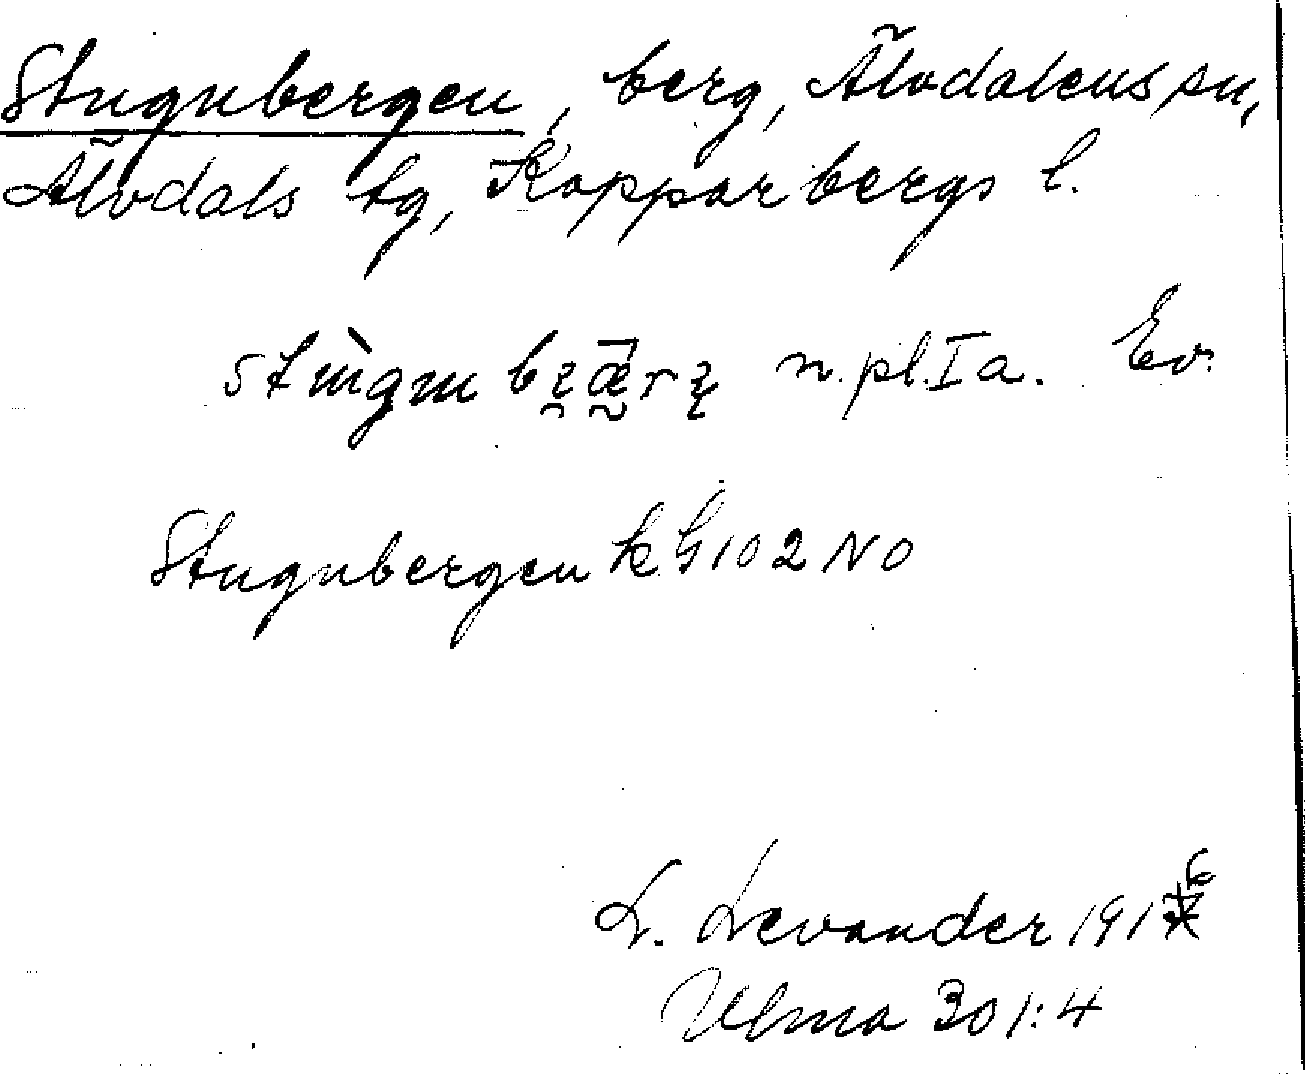 Stugubergen, berg, Älvdalens sn,
Älvdals tg, Kopparbergs l.
n. pl. I a. Ev.
Stugubergen k G 102 NO
L. Levander 1916
Ulma 301:4